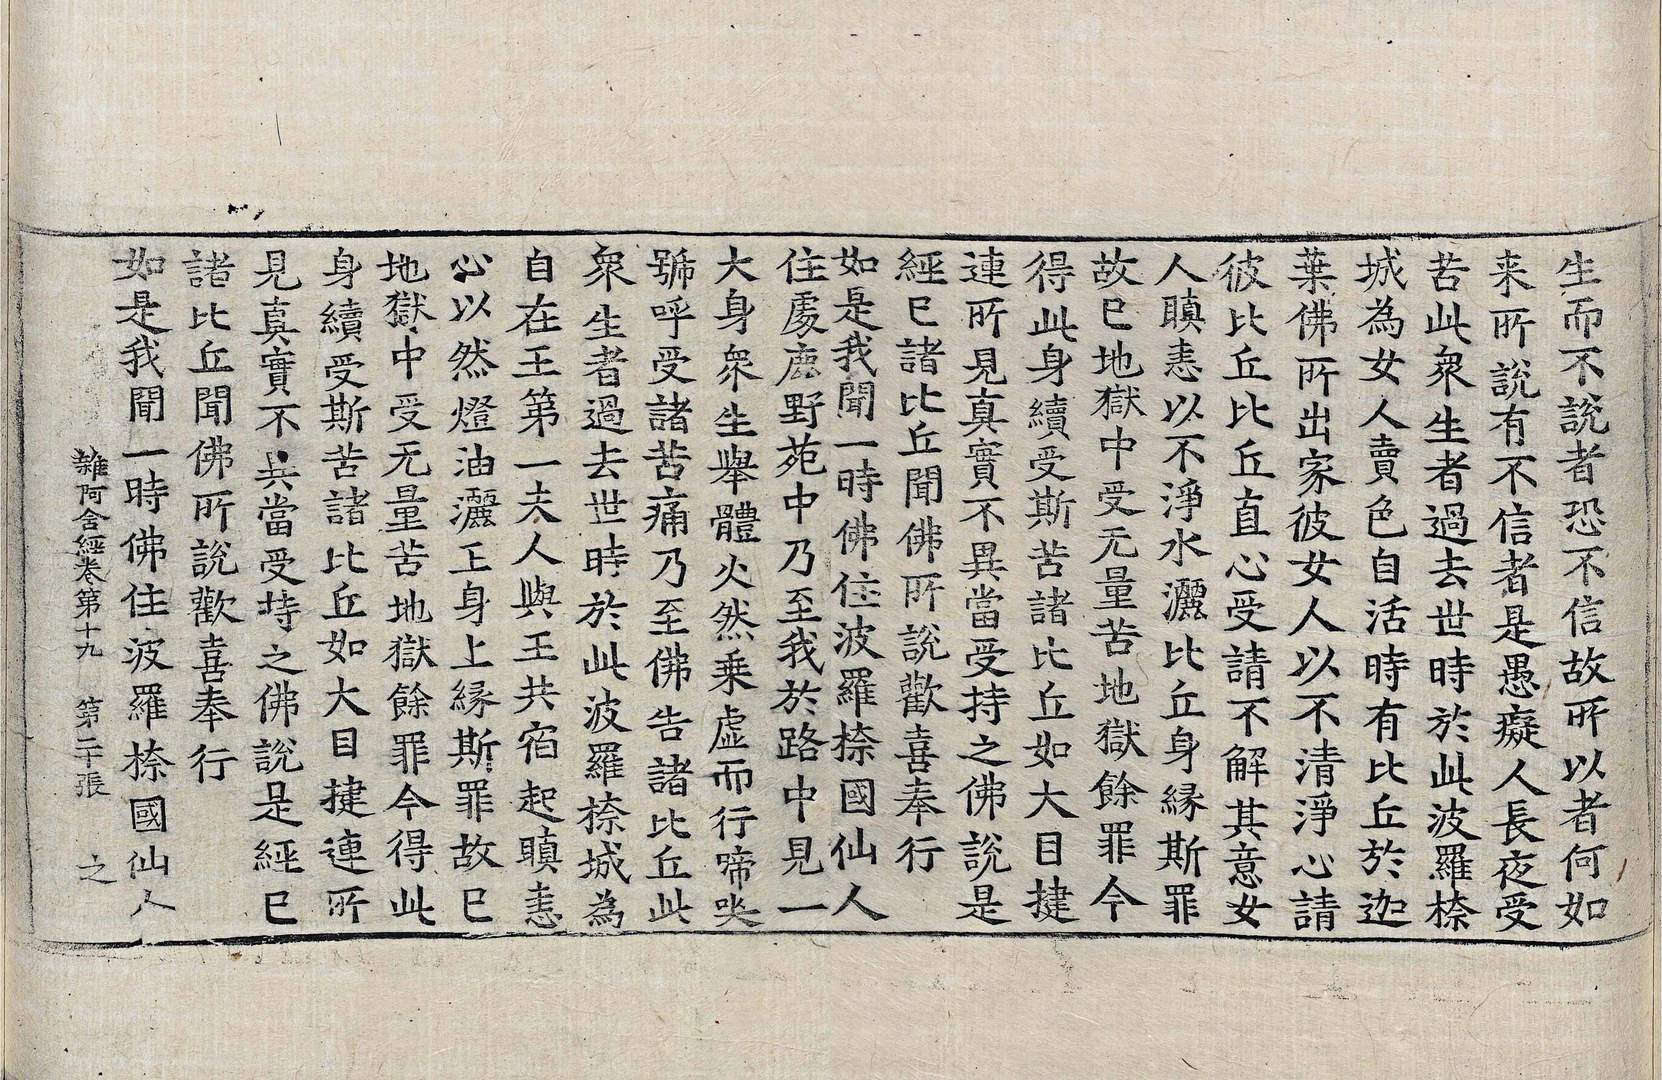 生而不說者恐不信故所以者何如
来所說有不信者是愚癡人長夜受
苦此衆生者過去世時於此波羅㮈
城為女人賣色自活時有比丘於迦
葉佛所出家彼女人以不清淨心請
彼比丘比丘直心受請不解其意女
人瞋恚以不淨水灑比丘身縁斯罪
故已地獄中受无量苦地獄餘罪今
得此身續受斯苦諸比丘如大目揵
連所見真實不異當受持之佛說是
經已諸比丘聞佛所說歡喜奉行
如是我聞一時佛住波羅㮈國仙人
住處鹿野苑中乃至我於路中見一
大身衆生舉體火然乗虛而行啼哭
號呼受諸苦痛乃至佛告諸比丘此
衆生者過去世時於此波羅㮈城為
自在王第一夫人與王共宿起瞋恚
心以然燈油灑王身上縁斯罪故已
地獄中受无量苦地獄餘罪今得此
身續受斯苦諸比丘如大目揵連所
見真實不異當受持之佛說是經已
諸比丘聞佛所說歡喜奉行
如是我聞一時佛住波羅㮈國仙人
雜阿含經卷第十九 第二十張 之